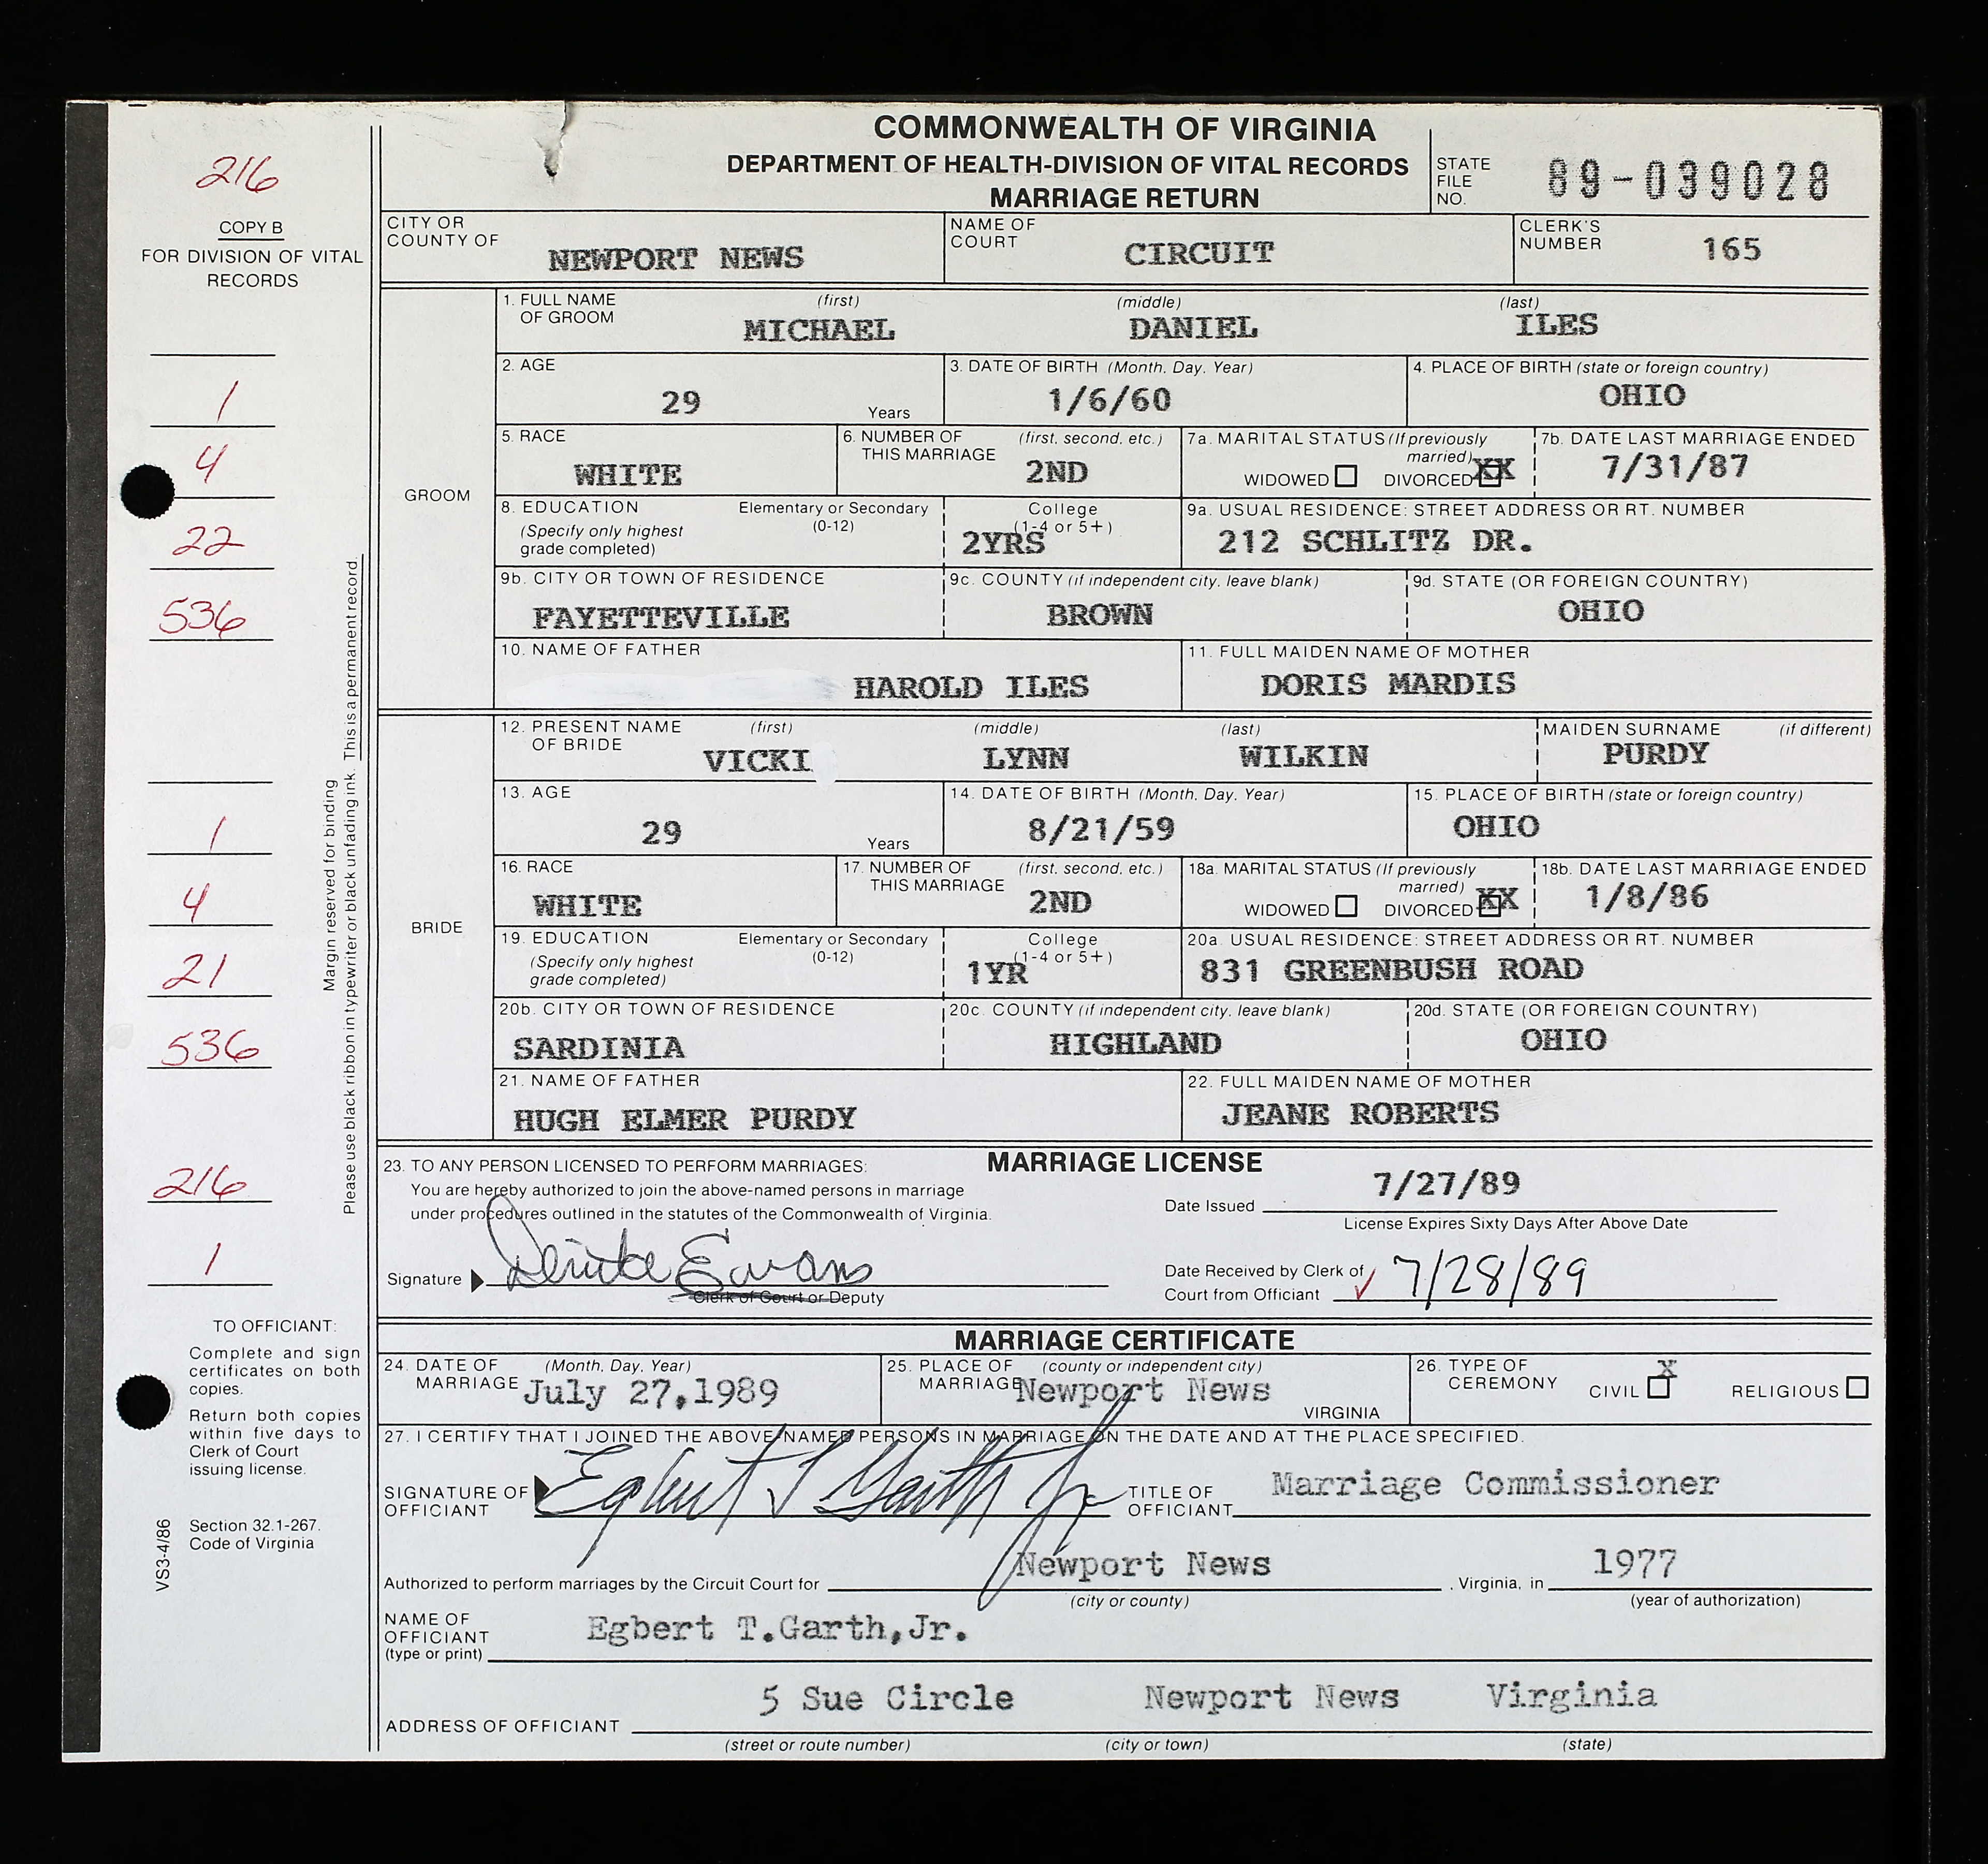 COMMONWEALTH OF VIRGINIA
DEPARTMENT OF HEALTH-DIVISION OF VITAL RECORDS
MARRIAGE RETURN
STATE FILE NO. 89-039028
216
COPY B
FOR DIVISION OF VITAL RECORDS
CITY OR COUNTY OF NEWPORT NEWS
NAME OF COURT CIRCUIT
CLERK'S NUMBER 165
GROOM
1. FULL NAME OF GROOM (first) MICHAEL (middle) DANIEL (last) ILES
2. AGE 29 Years
3. DATE OF BIRTH (Month, Day, Year) 1/6/60
4. PLACE OF BIRTH (state or foreign country) OHIO
5. RACE WHITE
6. NUMBER OF THIS MARRIAGE (first, second, etc.) 2ND
7a. MARITAL STATUS (If previously married) WIDOWED DIVORCED XX
7b. DATE LAST MARRIAGE ENDED 7/31/87
8. EDUCATION (Specify only highest grade completed) Elementary or Secondary (0-12) College (1-4 or 5+) 2YRS
9a. USUAL RESIDENCE: STREET ADDRESS OR RT. NUMBER 212 SCHLITZ DR.
9b. CITY OR TOWN OF RESIDENCE FAYETTEVILLE
9c. COUNTY (if independent city, leave blank) BROWN
9d. STATE (OR FOREIGN COUNTRY) OHIO
10. NAME OF FATHER HAROLD ILES
11. FULL MAIDEN NAME OF MOTHER DORIS MARDIS
BRIDE
12. PRESENT NAME OF BRIDE (first) VICKI (middle) LYNN (last) WILKIN
MAIDEN SURNAME (if different) PURDY
13. AGE 29 Years
14. DATE OF BIRTH (Month, Day, Year) 8/21/59
15. PLACE OF BIRTH (state or foreign country) OHIO
16. RACE WHITE
17. NUMBER OF THIS MARRIAGE (first, second, etc.) 2ND
18a. MARITAL STATUS (If previously married) WIDOWED DIVORCED XX
18b. DATE LAST MARRIAGE ENDED 1/8/86
19. EDUCATION (Specify only highest grade completed) Elementary or Secondary (0-12) College (1-4 or 5+) 1YR
20a. USUAL RESIDENCE: STREET ADDRESS OR RT. NUMBER 831 GREENBUSH ROAD
20b. CITY OR TOWN OF RESIDENCE SARDINIA
20c. COUNTY (if independent city, leave blank) HIGHLAND
20d. STATE (OR FOREIGN COUNTRY) OHIO
21. NAME OF FATHER HUGH ELMER PURDY
22. FULL MAIDEN NAME OF MOTHER JEANE ROBERTS
1
4
22
536
1
4
21
536
216
1
Margin reserved for binding
Please use black ribbon in typewriter or black unfading ink. This is a permanent record.
MARRIAGE LICENSE
23. TO ANY PERSON LICENSED TO PERFORM MARRIAGES:
You are hereby authorized to join the above-named persons in marriage
under procedures outlined in the statutes of the Commonwealth of Virginia.
Date Issued 7/27/89
License Expires Sixty Days After Above Date
Signature Evans
Clerk of Court or Deputy
Date Received by Clerk of Court from Officiant 7/28/89
TO OFFICIANT:
Complete and sign
certificates on both
copies.
Return both copies
within five days to
Clerk of Court
issuing license.
Section 32.1-267.
Code of Virginia
VS3-4/86
MARRIAGE CERTIFICATE
24. DATE OF MARRIAGE (Month, Day, Year) July 27,1989
25. PLACE OF MARRIAGE (county or independent city) Newport News VIRGINIA
26. TYPE OF CEREMONY CIVIL X RELIGIOUS
27. I CERTIFY THAT I JOINED THE ABOVE NAMED PERSONS IN MARRIAGE ON THE DATE AND AT THE PLACE SPECIFIED.
SIGNATURE OF OFFICIANT Egbert T Garth Jr
TITLE OF OFFICIANT Marriage Commissioner
Authorized to perform marriages by the Circuit Court for Newport News, Virginia, in 1977
(city or county) (year of authorization)
NAME OF OFFICIANT (type or print) Egbert T.Garth,Jr.
ADDRESS OF OFFICIANT 5 Sue Circle Newport News Virginia
(street or route number) (city or town) (state)